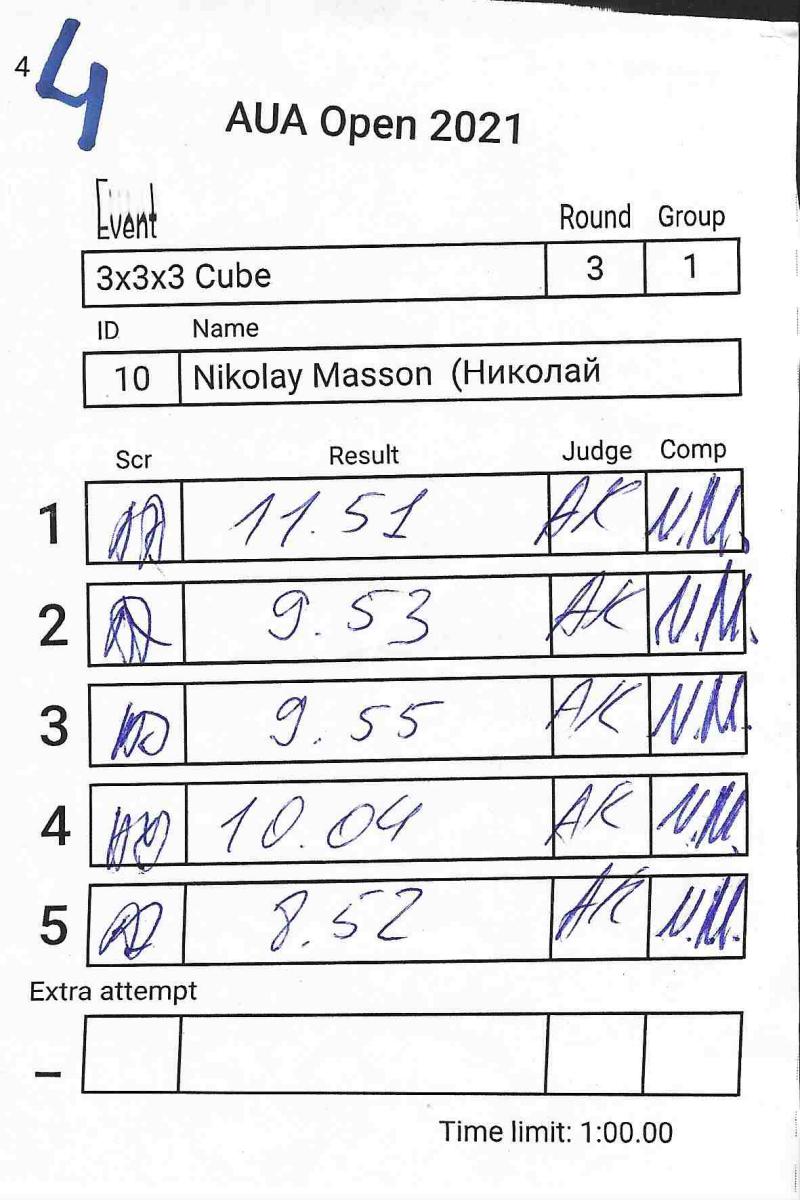 4 4
AUA Open 2021
Event Round Group
3x3x3 Cube 3 1
ID Name
10 Nikolay Masson (Николай
Scr Result Judge Comp
1 11.51 AK N.M.
2 9.53 AK N.M.
3 9.55 AK N.M.
4 10.04 AK N.M.
5 8.52 AK N.M.
Extra attempt
_
Time limit: 1:00.00